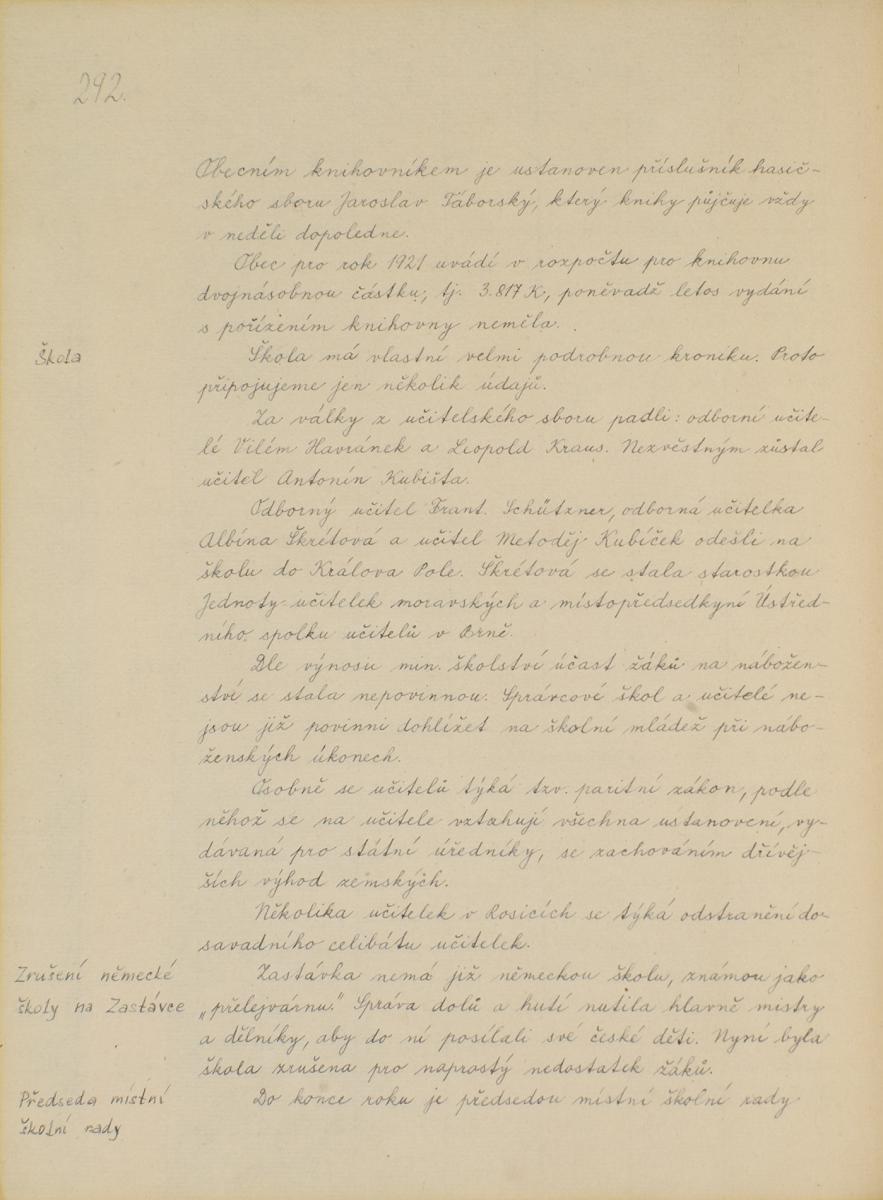 292.
Obecním knihovníkem je ustanoven příslušník hasič-
ského sboru Jaroslav Táborský, který knihy půjčuje vždy
v neděli dopoledne.
Obec pro rok 1921 uvádí v rozpočtu pro knihovnu
dvojnásobnou částku, tj. 3.817 K, poněvadž letos vydání
s pořízením knihovny neměla.
Škola
Škola má vlastní velmi podrobnou kroniku. Proto
připojujeme jen několik údajů.
Za války z učitelského sboru padli: odborní učite-
lé Vilém Havránek a Leopold Kraus. Nezvěstným zůstal
učitel Antonín Kubišta.
Odborný učitel Frant. Schützner, odborná učitelka
Albína Škrétová a učitel Metoděj Kubíček odešli na
školu do Králova Pole. Škrétová se stala starostkou
Jednoty učitelek moravských a místopředsedkyní Ústřed-
ního spolku učitelů v Brně.
Dle výnosu min. školství účast žáků na nábožen-
ství se stala nepovinnou. Správcové škol a učitelé ne-
jsou již povinni dohlížet na školní mládež při nábo-
ženských úkonech.
Osobně se učitelů týká tzv. paritní zákon, podle
něhož se na učitele vztahují všechna ustanovení, vy-
dávaná pro státní úředníky, se zachováním dřívěj-
ších výhod zemských.
Několika učitelek v Rosicích se týká odstranění do-
savadního celibátu učitelek.
Zrušení německé
školy na Zastávce
Zastávka nemá již německou školu, známou jako
„přelejvárnu." Správa dolů a hutí nutila hlavně mistry
a dělníky, aby do ní posílali své české děti. Nyní byla
škola zrušena pro naprostý nedostatek žáků.
Předseda místní
školní rady
Do konce roku je předsedou místní školní rady